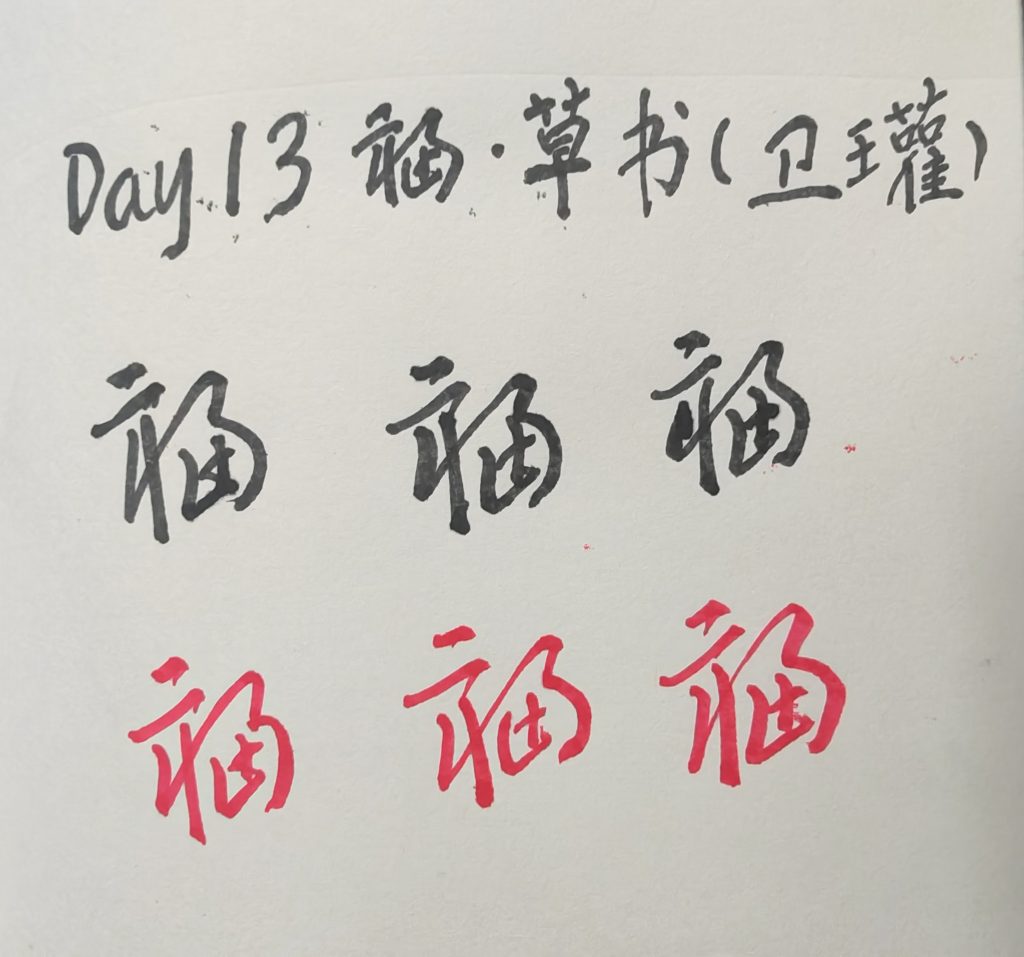 Day13 福·草书(卫瓘)
福 福 福
福 福 福